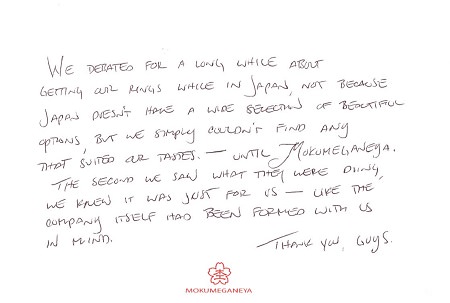 We debated for a long while about
getting our rings while in Japan, not because
Japan doesn't have a wide selection of beautiful
options, but we simply couldn't find any
that suited our tastes. — until Mokumeganeya.
The second we saw what they were doing,
we knew it was just for us — like the
company itself had been formed with us
in mind.
Thank you, guys.
MOKUMEGANEYA